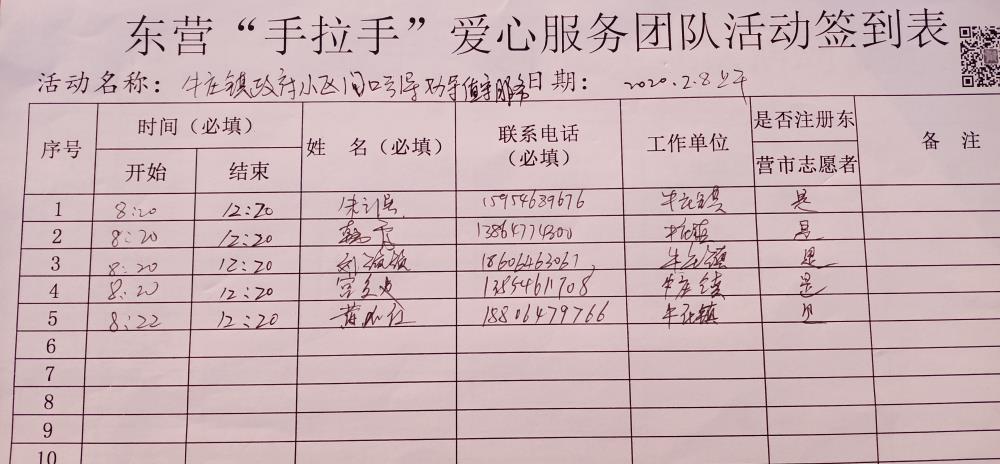 东营“手拉手”爱心服务团队活动签到表
活动名称：牛庄镇政府小区门口引导劝导值守服务 日期：2020.2.8上午
序号 时间（必填） 姓 名（必填） 联系电话（必填） 工作单位 是否注册东营市志愿者 备 注
开始 结束
1 8:20 12:20 15954639676 牛庄镇 是
2 8:20 12:20 13864774300 牛庄镇 是
3 8:20 12:20 18606463067 牛庄镇 是
4 8:20 12:20 13854611708 牛庄镇 是
5 8:22 12:20 18806479766 牛庄镇 是
6
7
8
9
10